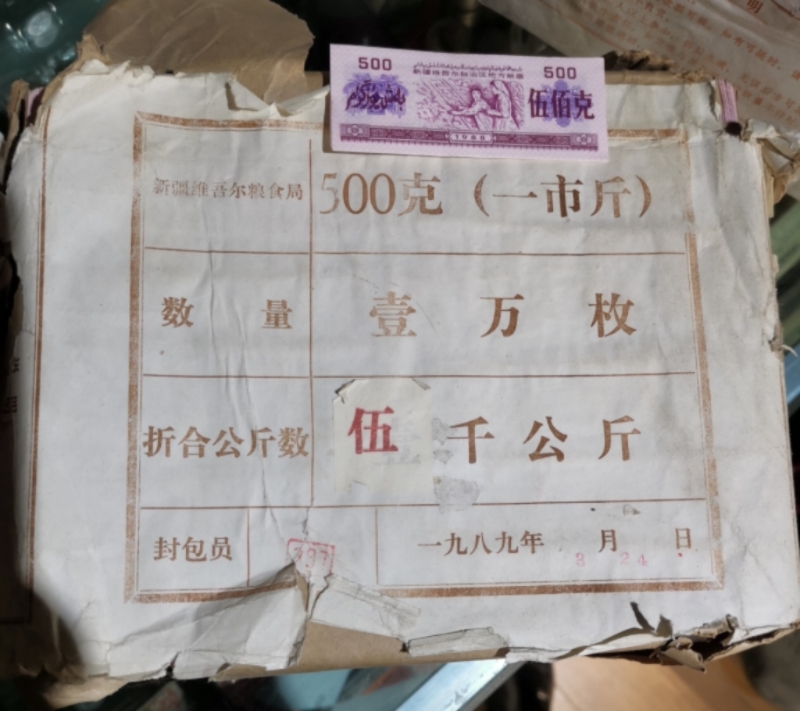 500
500
新疆维吾尔自治区地方粮票
伍佰克
1989
新疆维吾尔粮食局
500克（一市斤）
数量
壹万枚
折合公斤数
伍千公斤
封包员
一九八九年 3月24日